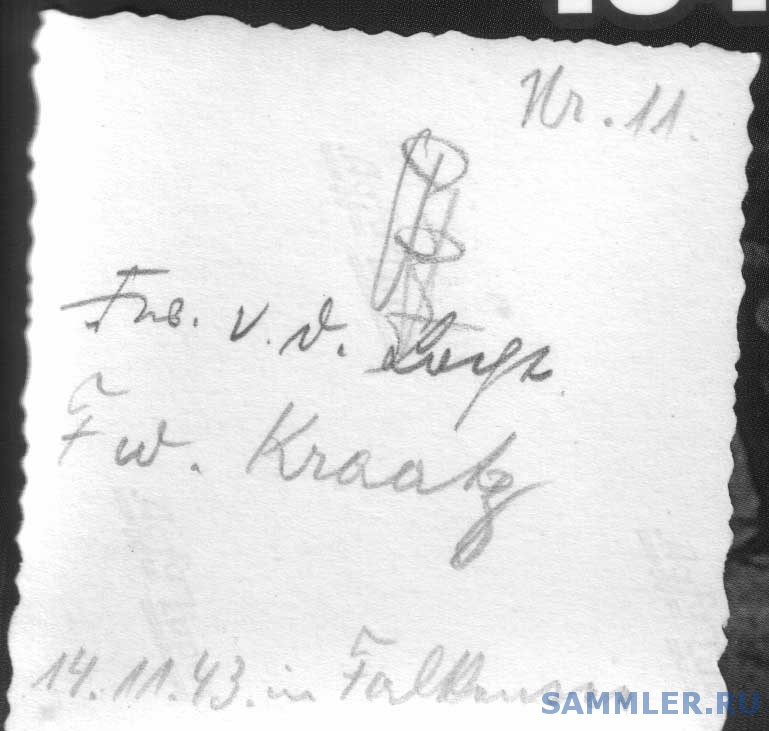 Nr. 11.
v. d.
Fw. Kraatz
14.11.43. in Falkensee
SAMMLER.RU